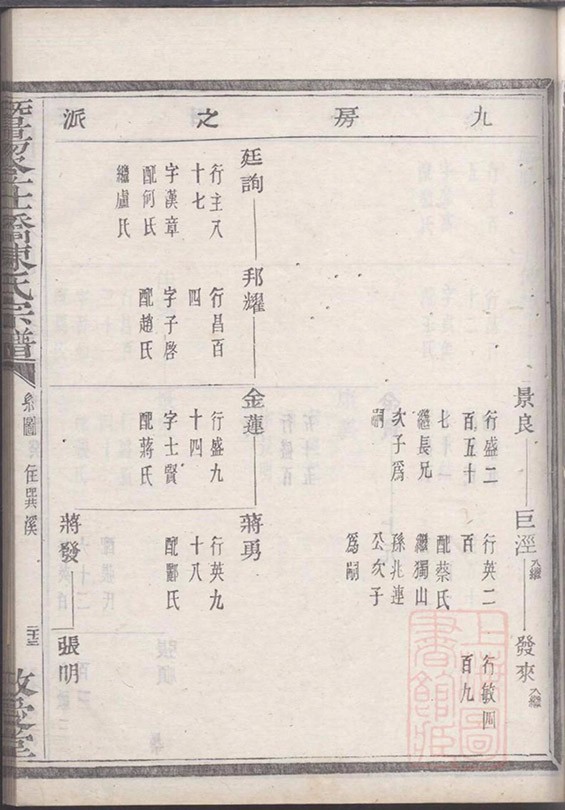 九房之派
景良
行盛二
百五十
七
繼長兄
次子為
嗣
巨涇入繼
行英二
百
配蔡氏
繼獨山
孫兆連
公次子
為嗣
發來入繼
行敏四
百九
廷詢
行主八
十七
字漢章
配何氏
繼盧氏
邦耀
行昌百
四
字子啓
配趙氏
金蓮
行盛九
十四
字士賢
配蔣氏
蔣勇
行英九
十八
配酈氏
蔣發
張明
暨陽 陳氏宗譜
系圖 住巽溪
二十三
敦 堂
上海圖書館藏